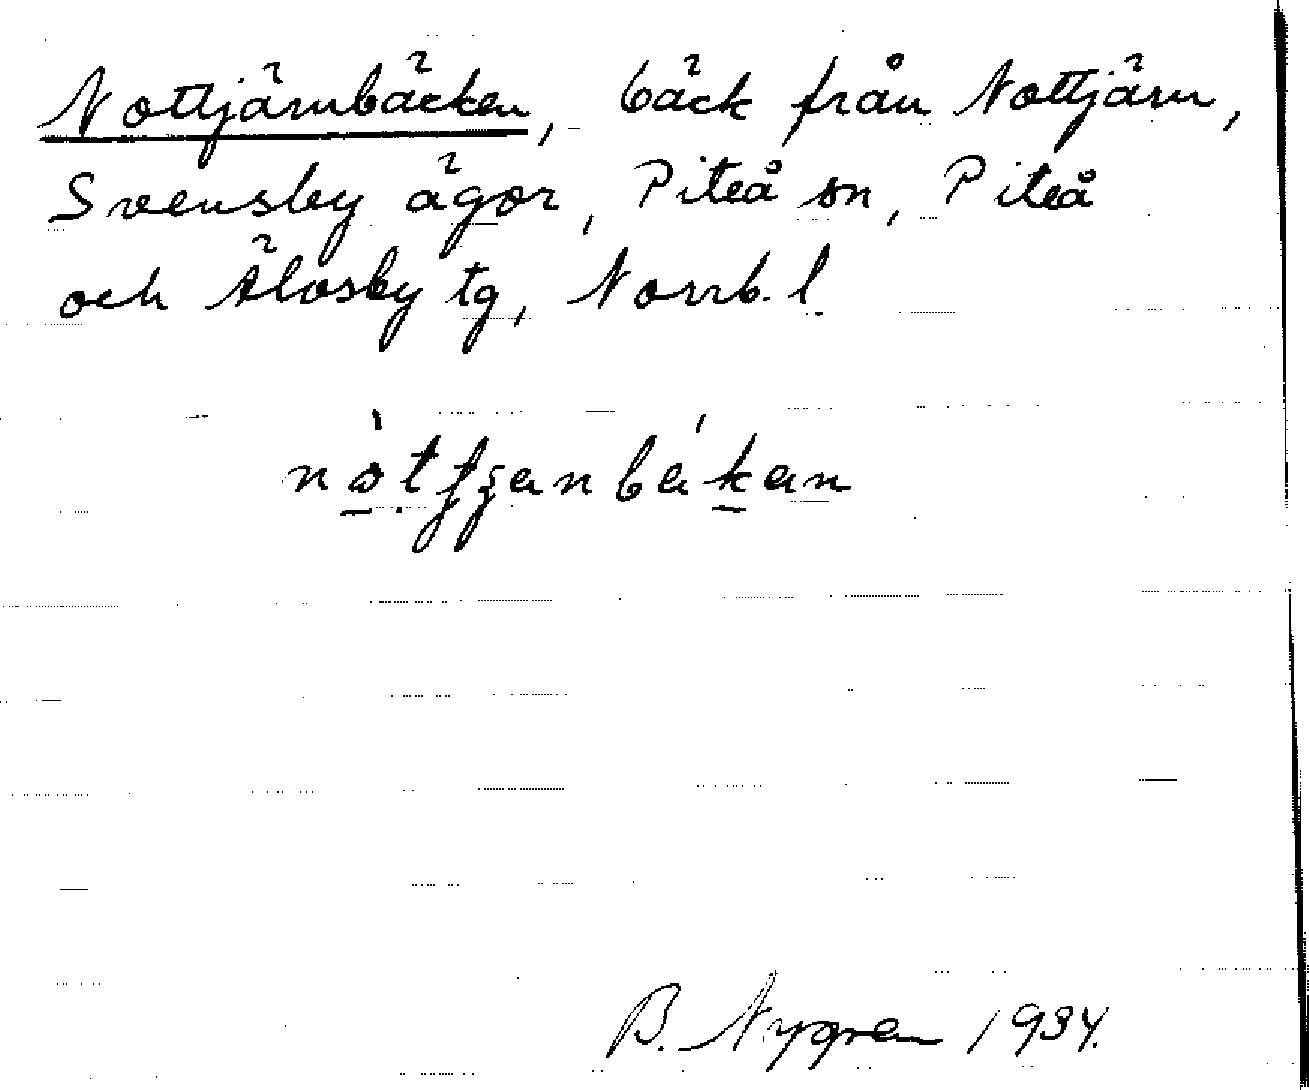 Nottjärnbäcken, bäck från Nottjärn,
Svensby ägor, Piteå sn, Piteå
och Älvsby tg, Norrb. l.
B. Nygren 1934.